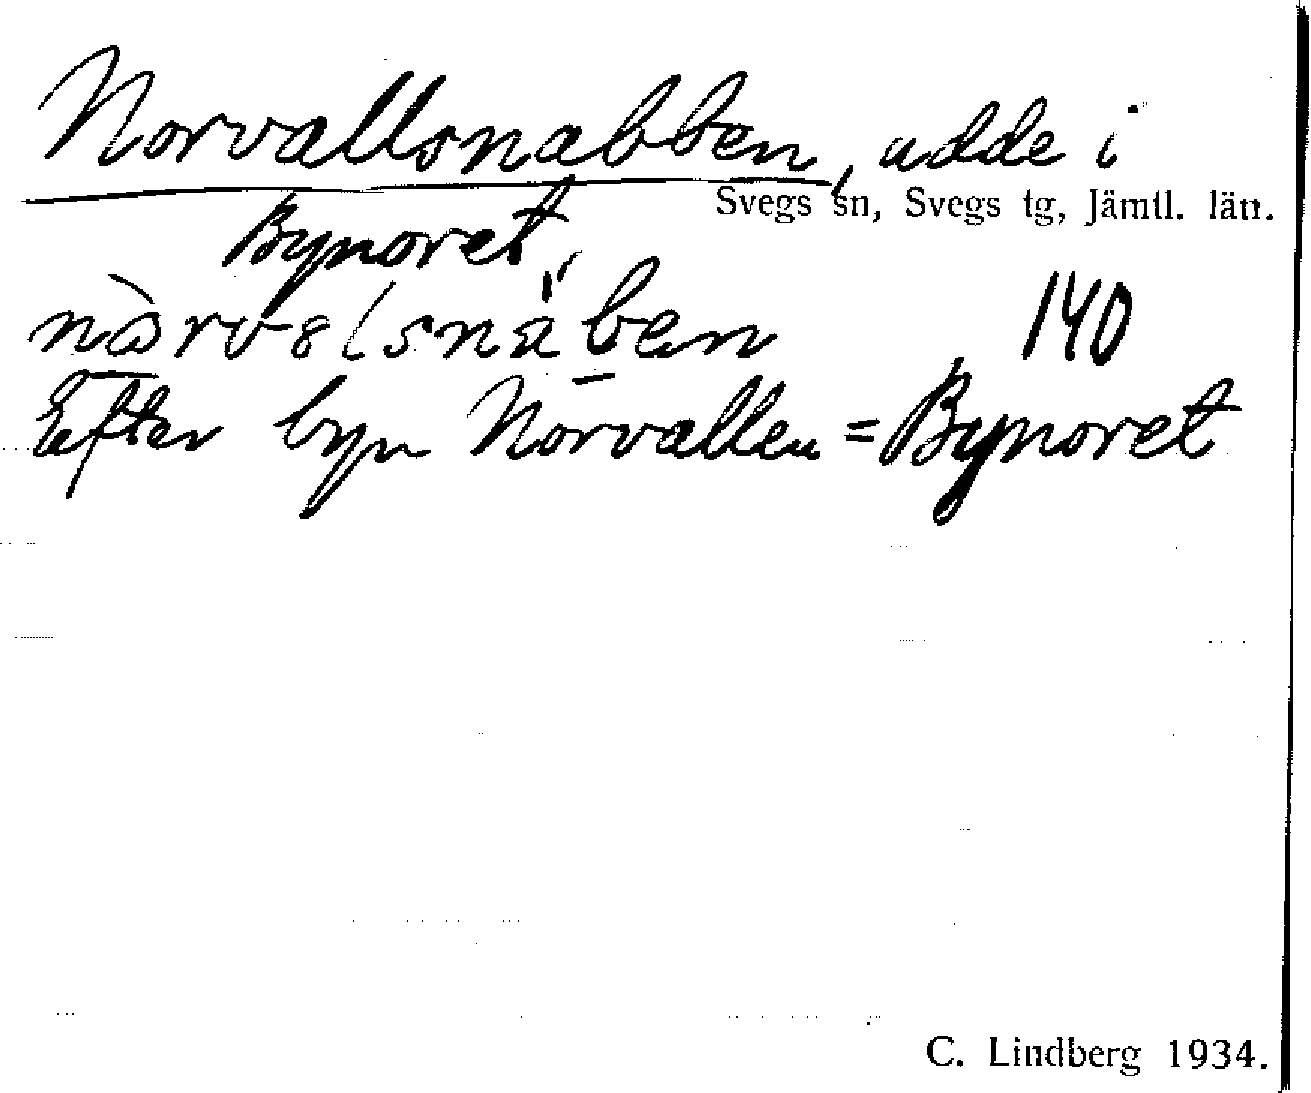 Norvallsnabben, udde i
Svegs sn, Svegs tg, Jämtl. län.
Bynoret,
140
Efter byn Norvallen = Bynoret
C. Lindberg 1934.